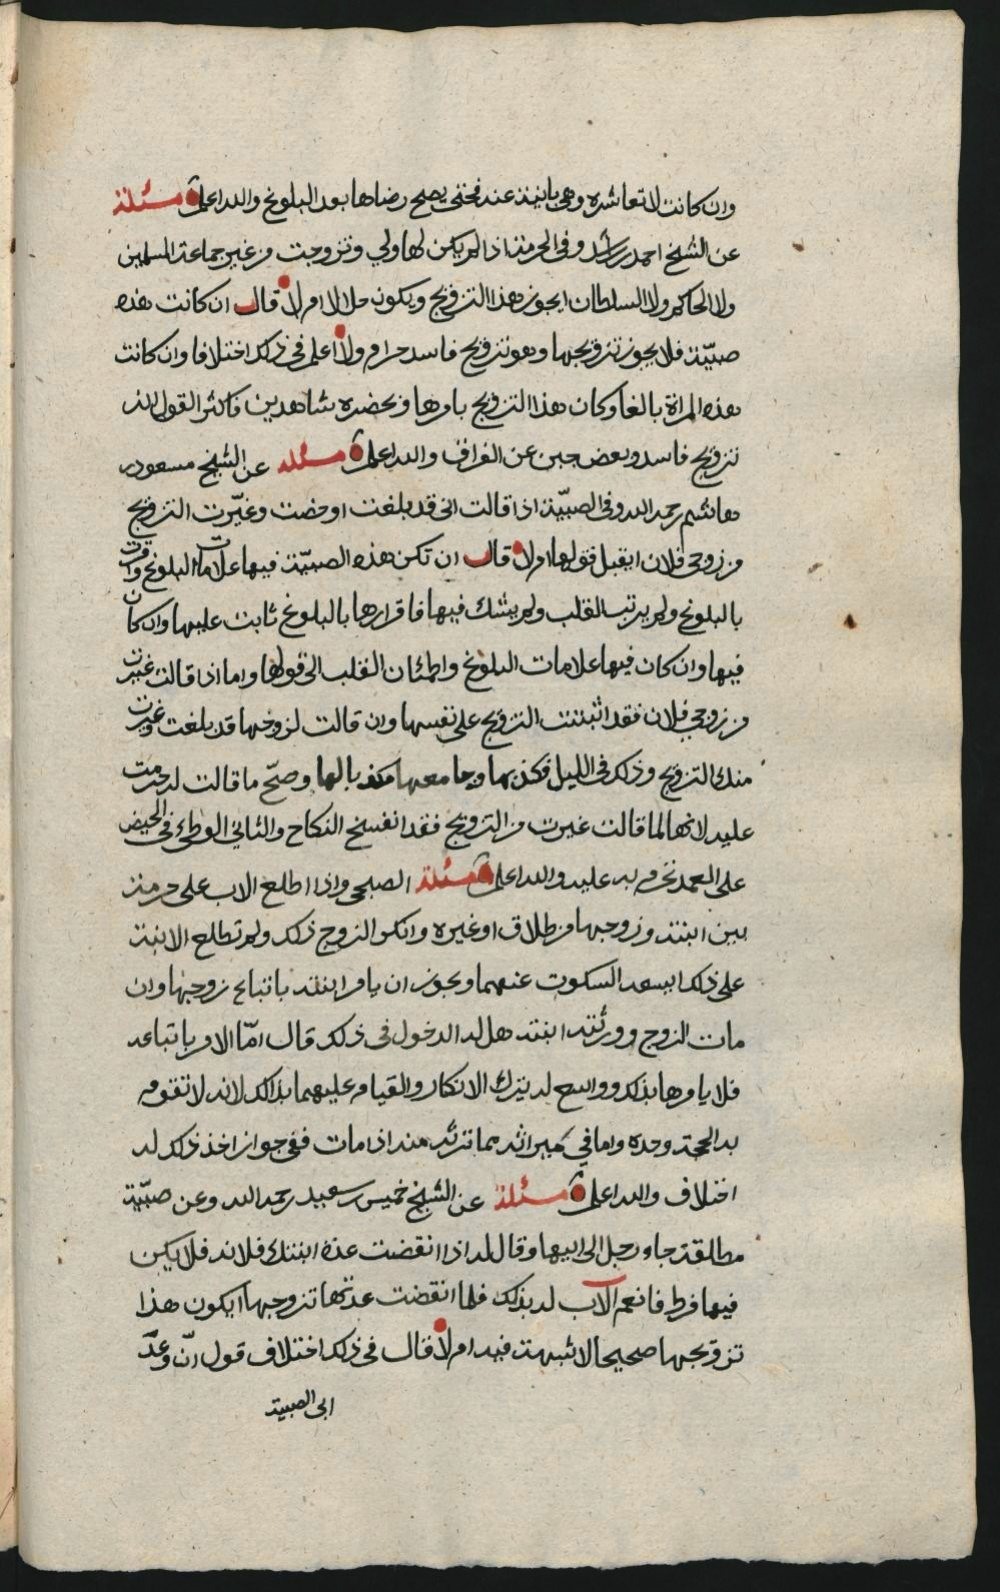 وان كانت لا تعاشره وهي باينة عنه فحتى يصح رضاها بعد البلوغ والله اعلم مسئلة
عن الشيخ احمد بن راشد وفي الحرمة اذا لم يكن لها ولي وتزوجت من غير جماعة المسلمين
ولا الحاكم ولا السلطان ايجوز هذا التزويج ويكون حلالا ام لا قال ان كانت هذه
صبيّة فلا يجوز تزويجها وهو تزويج فاسد حرام ولا اعلم في ذلك اختلافا وان كانت
هذه المراة بالغا وكان هذا التزويج بامرها وبحضره شاهدين فاكثر القول انه
تزويج فاسد وبعض جبن عن الفراق والله اعلم مسئلة عن الشيخ مسعود بن
هاشم رحمه الله وفي الصبيّة اذا قالت اني قد بلغت او حضت وغيّرت التزويج
من زوجي فلان ايقبل قولها ام لا قال ان تكن هذه الصبيّة فيها علامات البلوغ واقرت
بالبلوغ ولم يرتب القلب ولم يشك فيها فاقرارها بالبلوغ ثابت عليها وان كان
فيها وان كان فيها علامات البلوغ واطمئان القلب الى قولها واما اذا قالت غيرت
من زوجي فلان فقد اثبتت التزويج على نفسها وان قالت لزوجها قد بلغت وغيرت
منك التزويج وذلك في الليل فكذبها وجامعها مكذبا لها وصحّ ما قالت له حرمت
عليه لانها لما قالت غيرت من التزويج فقد انفسخ النكاح والثاني الوطئ في الحيض
على العمد تحرم به عليه والله اعلم مسئلة الصبحي واذا اطلع الاب على حرمة
بين ابنته وزوجها من طلاق او غيره وانكر الزوج ذلك ولم تطلع الابنة
على ذلك ايسعه السكوت عنهما ويجوز ان يامر ابنته باتباع زوجها وان
مات الزوج وورثته ابنته هل له الدخول في ذلك قال امّا الامر باتباعه
فلا يامرها بذلك وواسع له ترك الانكار والقيام عليهما بذلك لانه لا تقوم
به الحجة وحده واما في ميراثه مما ترثه منه اذا مات ففي جواز اخذ ذلك له
اختلاف والله اعلم مسئلة عن الشيخ خميس بن سعيد رحمه الله وعن صبيّة
مطلقة جاء رجل الى ابيها وقال له اذا انقضت عدة ابنتك فلانه فلا يكن
فيها فرط فانعم الاب له بذلك فلما انقضت عدتها تزوجها ايكون هذا
تزويجها صحيحا لا شبهة فيه ام لا قال في ذلك اختلاف قول انّ وعدّ
ابي الصبية